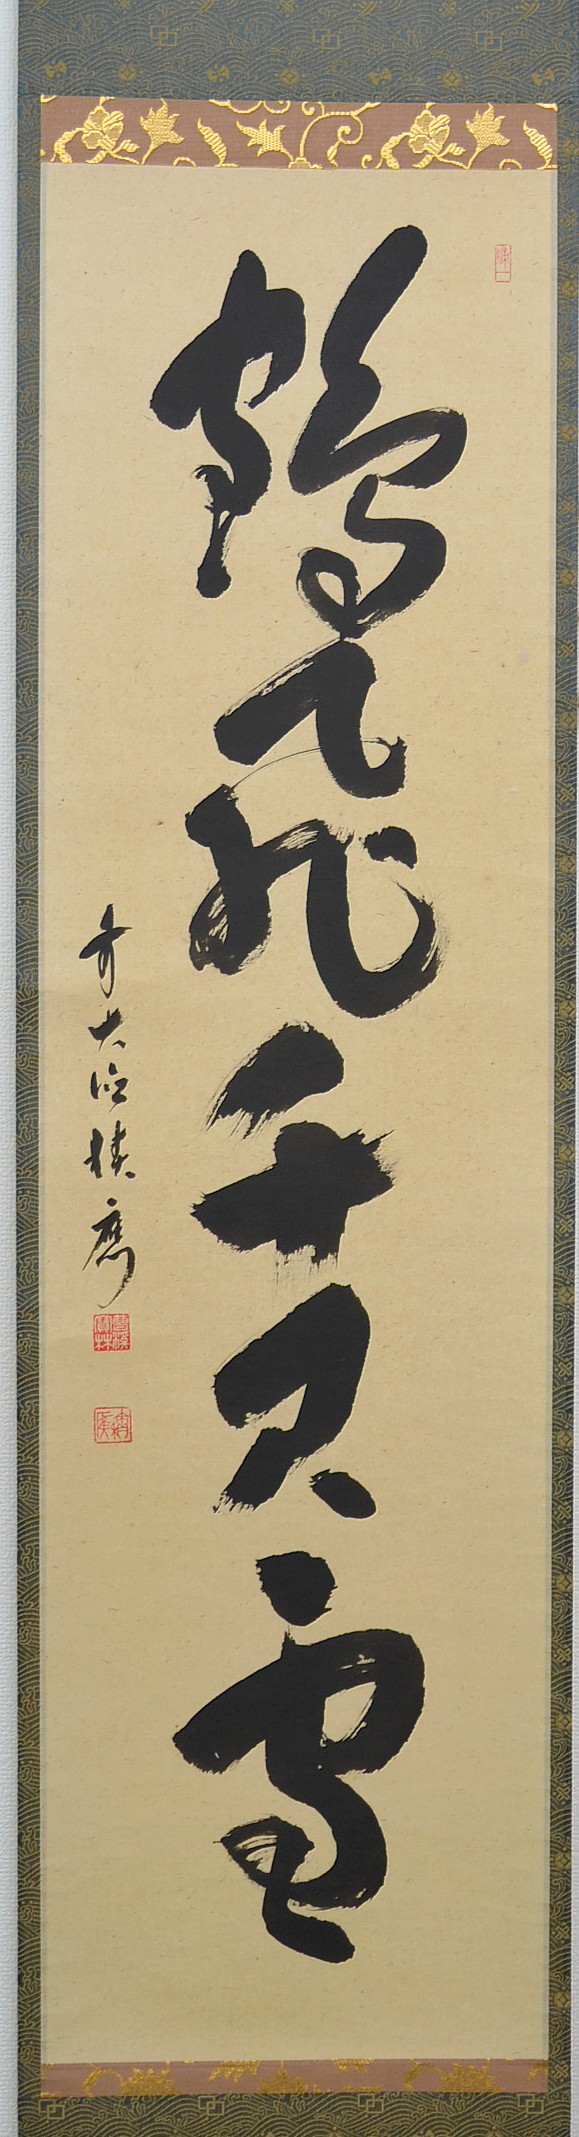 鶴飛千尺雪
前大徳積應